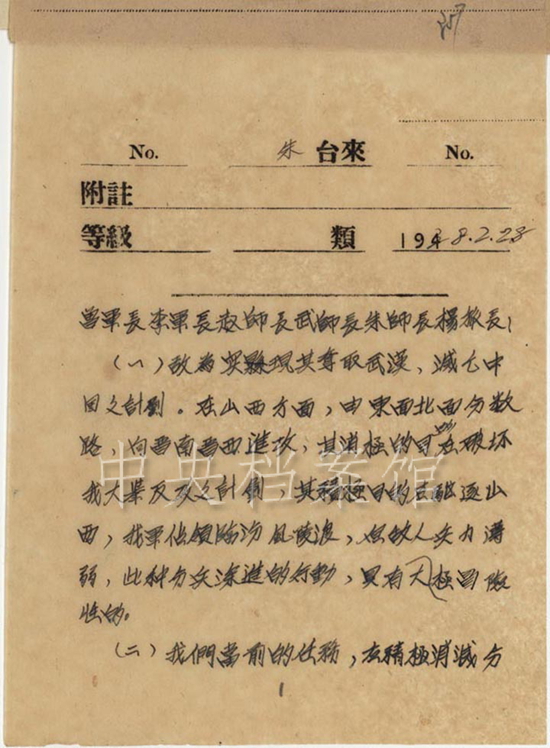 257
No. 朱 台來 No.
附註
等級 類 1938.2.28
曾軍長李軍長趙師長武師長朱師長楊旅長:
(一)敌為實現其奪取武漢,滅亡中
国之計劃。在山西方面,由東面北面分数
路,向晋南晋西進攻,其消極的目的在破坏
我大舉反攻之計劃,其積極目的在驅逐山
西,我軍佔領臨汾風陵渡,但敌人兵力薄
弱,此种分兵深進的行動,具有大極冒險
性的。
(二)我們當前的任務,在積極消滅分
1
中央档案馆